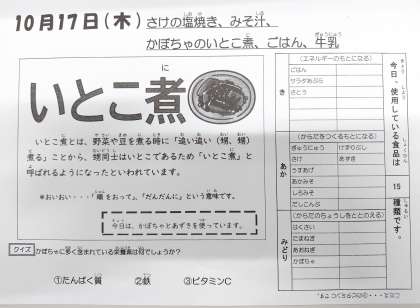 10月17日(木) さけの塩焼き、みそ汁、
かぼちゃのいとこ煮、ごはん、牛乳
いとこ煮
に
いとこ煮とは、野菜や豆を煮る時に「追い追い（甥、甥）
煮る」ことから、甥同士はいとこであるため「いとこ煮」と
呼ばれるようになったといわれています。
※おいおい・・・「順をおって」、「だんだんに」という意味です。
今日は、かぼちゃとあずきを使っています。
クイズ かぼちゃに多く含まれている栄養素は何でしょうか？
①たんぱく質 ②鉄 ③ビタミンC
今日、使用している食品は
15
種類です。
き
（エネルギーのもとになる）
ごはん
サラダあぶら
さとう
あか
（からだをつくるもとになる）
ぎゅうにゅう けずりぶし
さけ あずき
うすあげ
あかみそ
しろみそ
だしこんぶ
みどり
（からだのちょうしをととのえる）
はくさい
たまねぎ
あおねぎ
かぼちゃ